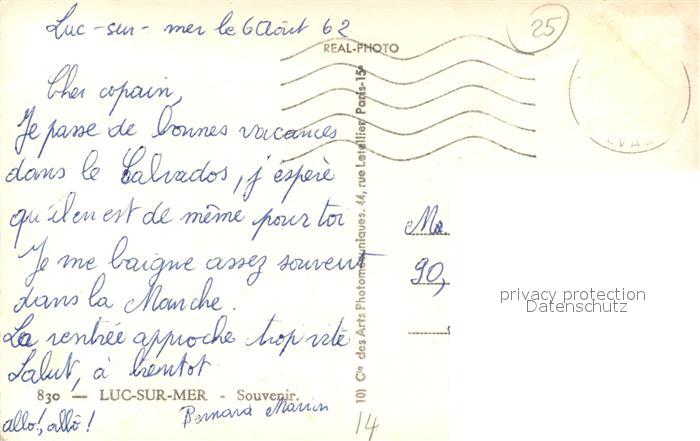 Luc-sur-mer le 6 Août 62
25
REAL-PHOTO
Cher copain,
Je passe de bonnes vacances
dans le Calvados, j'éspère
qu'il en est de même pour toi
Je me baigne assez souvent
dans la Manche.
La rentrée approche trop vite
Salut, à bientot
830 — LUC-SUR-MER - Souvenir.
allo!, allô!
Bernard Marin
10) Cie des Arts Photomécaniques. 44, rue Letellier, Paris-15e
90,
privacy protection
Datenschutz
14